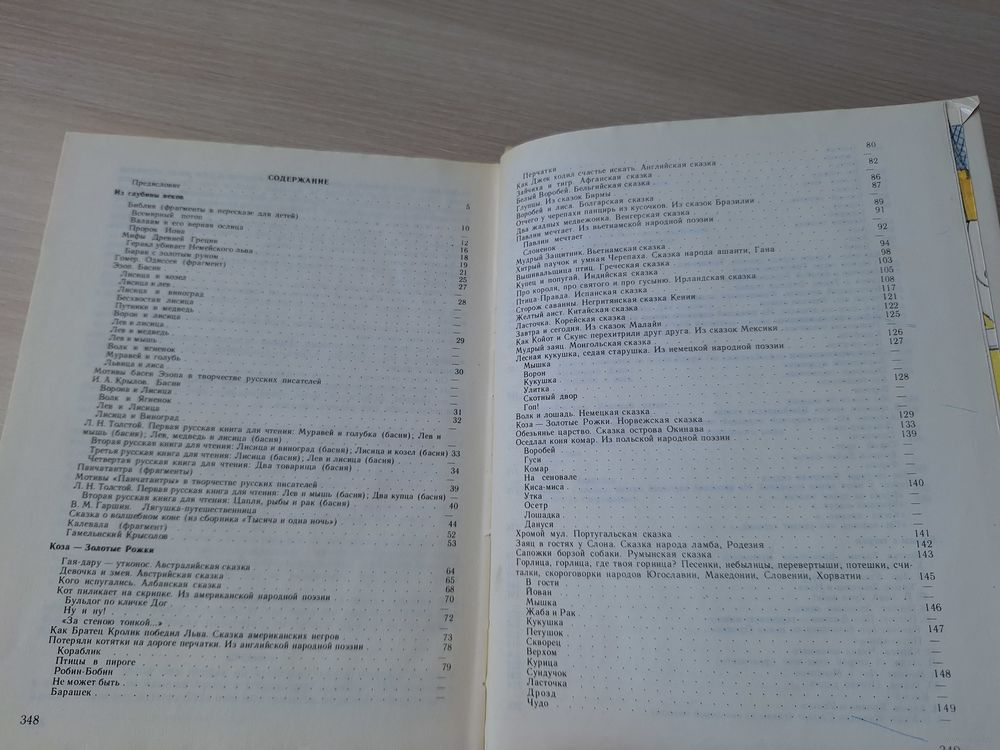 СОДЕРЖАНИЕ
Предисловие
Из глубины веков
Библия (фрагменты в пересказе для детей) 5
Всемирный потоп —
Валаам и его верная ослица 10
Пророк Иона —
Мифы Древней Греции 12
Геракл убивает Немейского льва 16
Баран с золотым руном 18
Гомер. Одиссея (фрагмент) 19
Эзоп. Басни 21
Лисица и козел 25
Лисица и лев 27
Лисица и виноград —
Бесхвостая лисица 28
Путники и медведь —
Ворон и лисица —
Лев и лисица —
Лев и медведь —
Лев и мышь 29
Волк и ягненок —
Муравей и голубь —
Львица и лиса —
Мотивы басен Эзопа в творчестве русских писателей 30
И. А. Крылов. Басни —
Ворона и Лисица —
Волк и Ягненок —
Лев и Лисица 31
Лисица и Виноград 32
Л. Н. Толстой. Первая русская книга для чтения: Муравей и голубка (басня); Лев и
мышь (басня); Лев, медведь и лисица (басня) —
Вторая русская книга для чтения: Лисица и виноград (басня); Лисица и козел (басня) 33
Третья русская книга для чтения: Лисица (басня); Лев и лисица (басня) —
Четвертая русская книга для чтения: Два товарища (басня) 34
Панчатантра (фрагменты) —
Мотивы «Панчатантры» в творчестве русских писателей 39
Л. Н. Толстой. Первая русская книга для чтения: Лев и мышь (басня); Два купца (басня) —
Вторая русская книга для чтения: Цапля, рыбы и рак (басня) 40
В. М. Гаршин. Лягушка-путешественница —
Сказка о волшебном коне (из сборника «Тысяча и одна ночь») 44
Калевала (фрагмент) 52
Гамельнский Крысолов 53
Коза — Золотые Рожки
Гая-дару — утконос. Австралийская сказка 64
Девочка и змея. Австрийская сказка 65
Кого испугались. Албанская сказка 68
Кот пиликает на скрипке. Из американской народной поэзии 70
Бульдог по кличке Дог —
Ну и ну! 72
«За стеною тонкой...» —
Как Братец Кролик победил Льва. Сказка американских негров 73
Потеряли котятки на дороге перчатки. Из английской народной поэзии 78
Кораблик —
Птицы в пироге 79
Робин-Бобин —
Не может быть —
Барашек —
348
Перчатки 80
Как Джек ходил счастье искать. Английская сказка 82
Зайчиха и тигр. Афганская сказка
Белый Воробей. Бельгийская сказка 86
Глупцы. Из сказок Бирмы 87
Воробей и лиса. Болгарская сказка
Отчего у черепахи панцирь из кусочков. Из сказок Бразилии 89
Два жадных медвежонка. Венгерская сказка 91
Павлин мечтает. Из вьетнамской народной поэзии 92
Павлин мечтает
Слоненок —
Мудрый Защитник. Вьетнамская сказка 94
Хитрый паучок и умная Черепаха. Сказка народа ашанти, Гана 98
Вышивальщица птиц. Греческая сказка 103
Купец и попугай. Индийская сказка 105
Про короля, про святого и про гусыню. Ирландская сказка 108
Птица-Правда. Испанская сказка 117
Сторож саванны. Негритянская сказка Кении 121
Желтый аист. Китайская сказка 122
Ласточка. Корейская сказка 125
Завтра и сегодня. Из сказок Малайи
Как Койот и Скунс перехитрили друг друга. Из сказок Мексики 126
Мудрый заяц. Монгольская сказка 127
Лесная кукушка, седая старушка. Из немецкой народной поэзии —
Мышка —
Ворон —
Кукушка 128
Улитка —
Скотный двор —
Гоп! —
Волк и лошадь. Немецкая сказка 129
Коза — Золотые Рожки. Норвежская сказка 133
Обезьянье царство. Сказка острова Окинава 139
Оседлал коня комар. Из польской народной поэзии —
Воробей —
Гуси —
Комар —
На сеновале —
Киса-миса 140
Утка —
Осетр —
Лошадка —
Дануся —
Хромой мул. Португальская сказка 141
Заяц в гостях у Слона. Сказка народа ламба, Родезия 142
Сапожки борзой собаки. Румынская сказка 143
Горлица, горлица, где твоя горница? Песенки, небылицы, перевертыши, потешки, счи-
талки, скороговорки народов Югославии, Македонии, Словении, Хорватии 145
В гости —
Йован —
Мышка 146
Жаба и Рак —
Кукушка 147
Петушок —
Скворец —
Верхом —
Курица —
Сундучок 148
Ласточка —
Дрозд 149
Чудо —
349